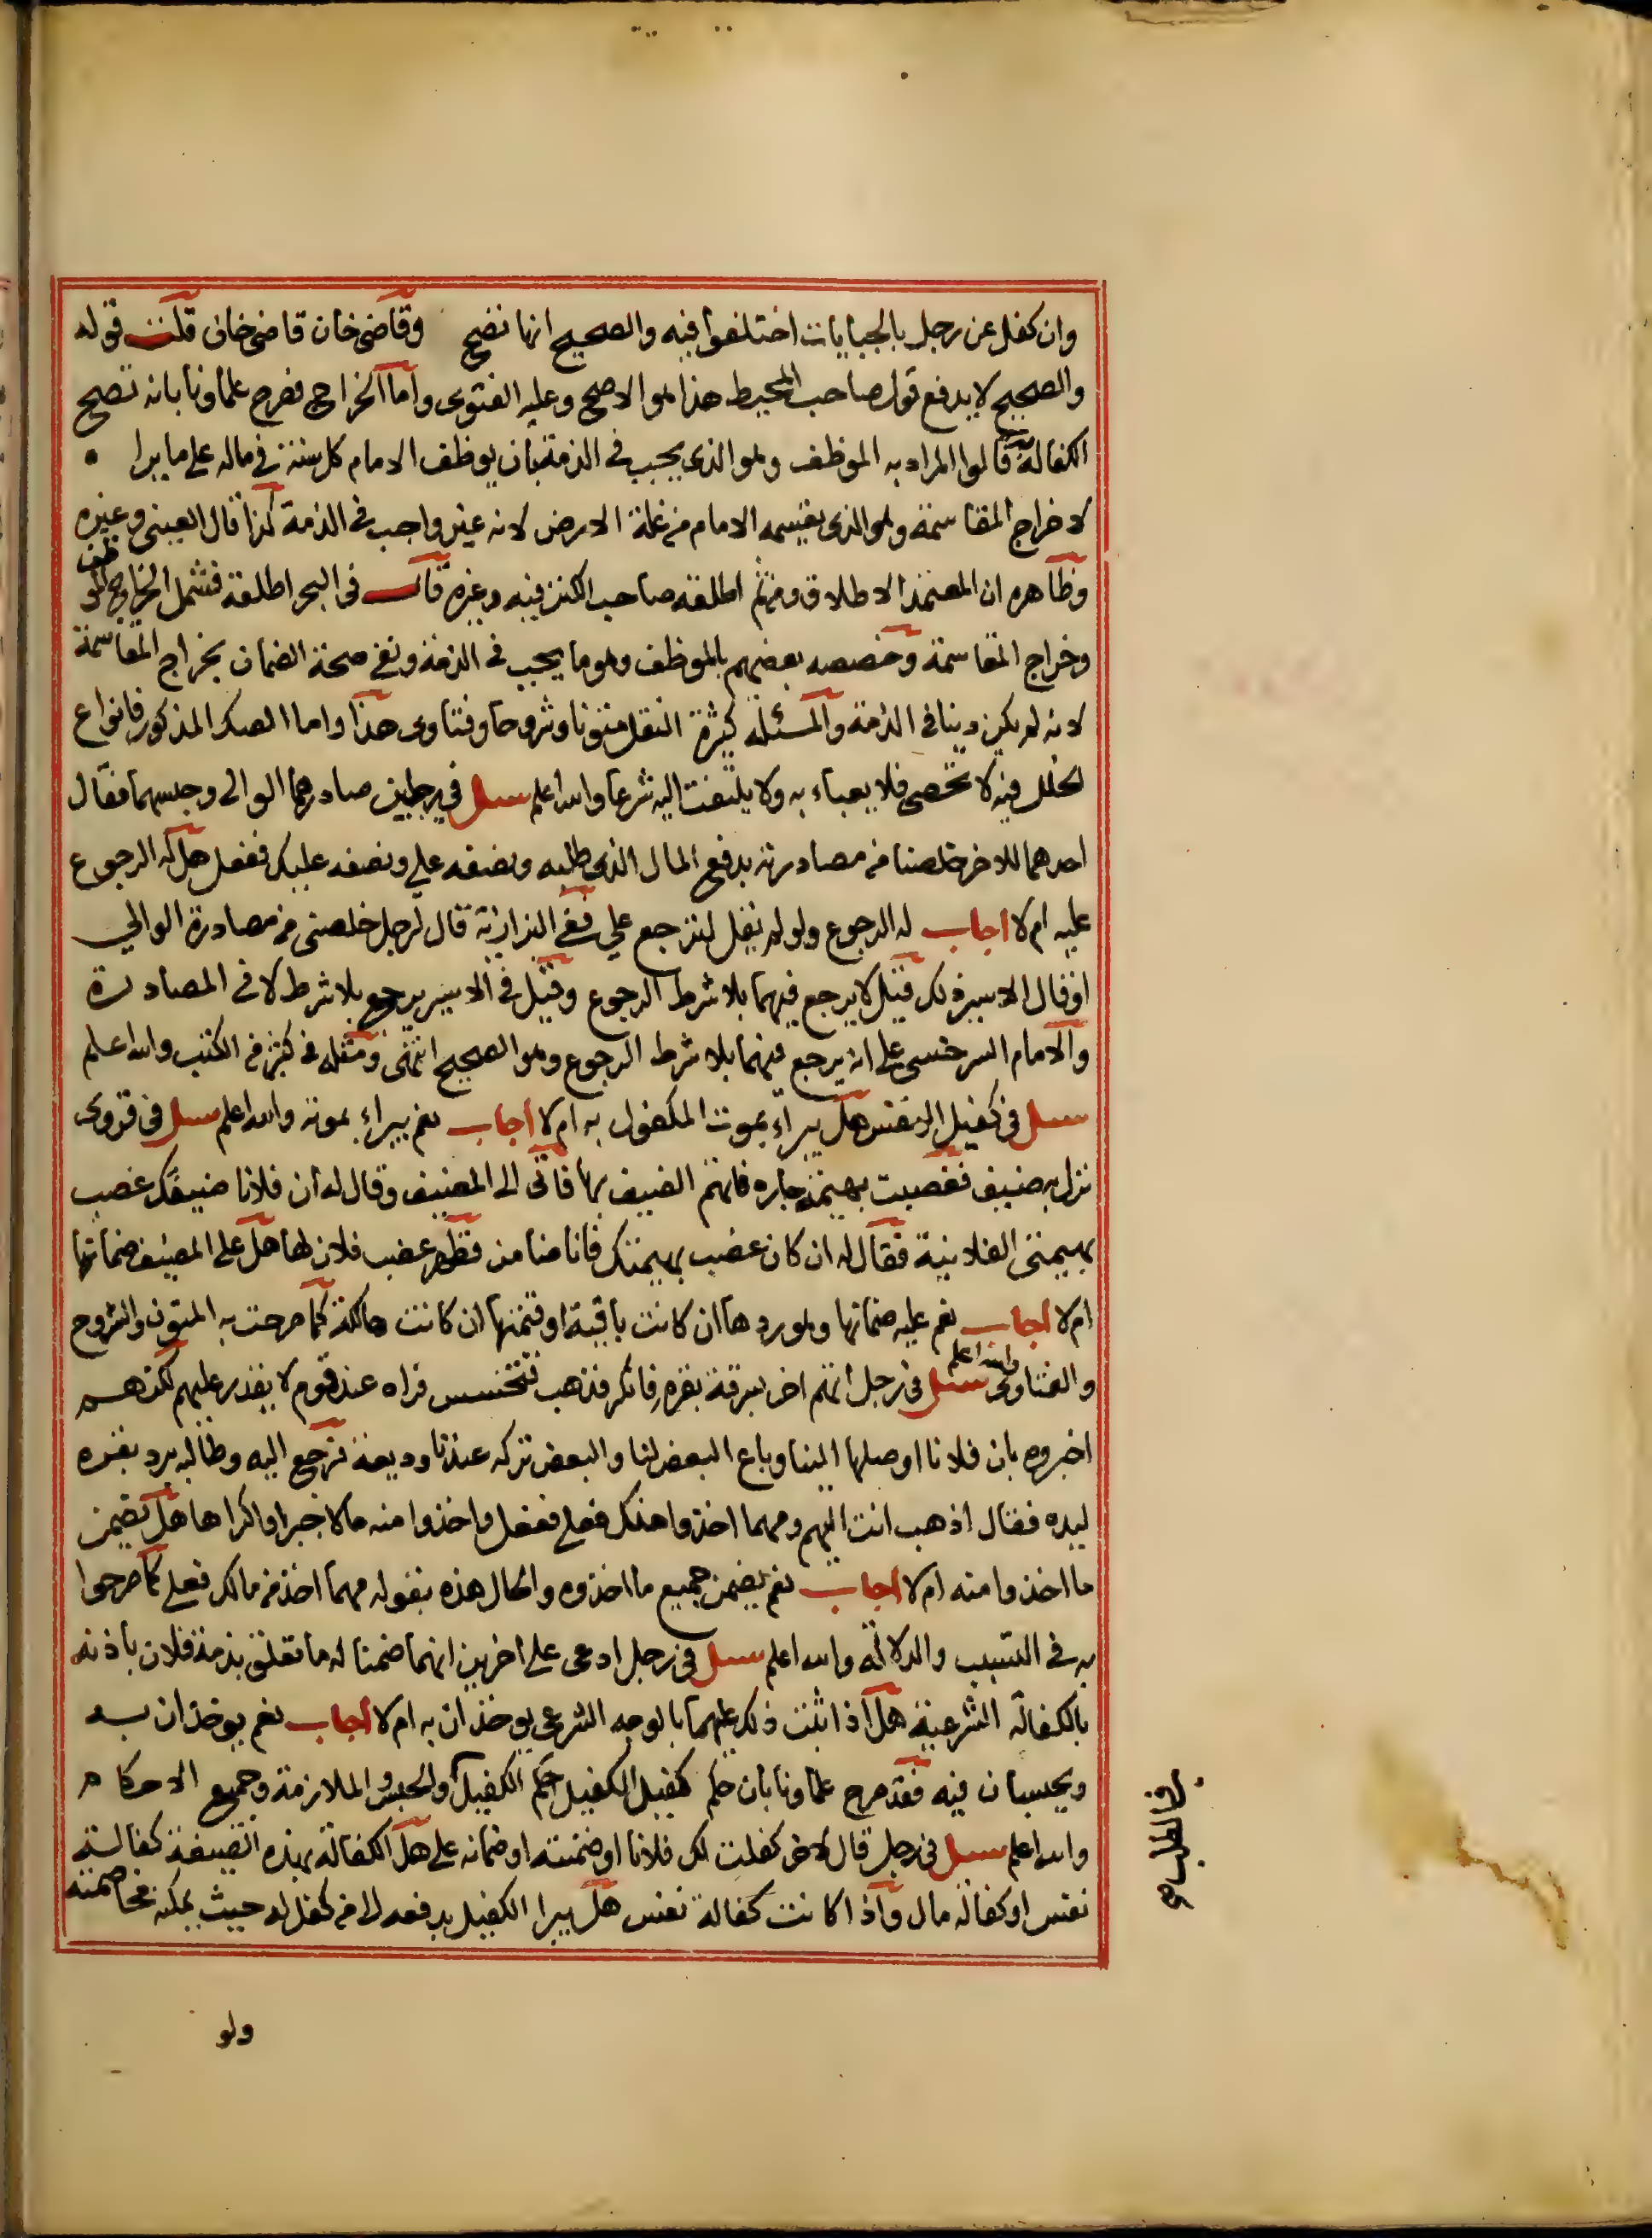 وان كفل عن رجل بالجبايات اختلفوا فيه والصحيح انها تصح وقاضى خان قاضى خان قلت قوله
والصحيح لا يدفع قول صاحب المحيط هذا هو الاصح وعليه الفتوى واما الخراج فصرح علماونا بانه تصح
الكفالة به قالوا المراد به الموظف وهو الذى يجب فى الذمة بان يوظف الامام كل سنة فى ماله على ما يرا
لا خراج المقاسمة وهو الذى يقسمه الامام من غلة الارض لانه غير واجب فى الذمة كذا قال العينى وغيره
وظاهره ان المعتمد الاطلاق ومن ثم اطلقه صاحب الكنز فيه وغيره قال فى البحر اطلقه فشمل الخراج الموظف
وخراج المقاسمة وخصصه بعضهم بالموظف وهو ما يجب فى الذمة ونفى صحة الضمان بخراج المقاسمة
لانه لم يكن دينا فى الذمة والمسئلة كثيرة النقل متونا وشروحا وفتاوى هذا واما الصك المذكور فانواع
الخلل فيه لا تحصى فلا يعباء به ولا يلتفت اليه شرعا والله اعلم سئل فى رجلين صادرهما الوالى وحبسهما فقال
احدهما للاخر خلصنا من مصادرته بدفع المال الذى طلبه ونصفه علي ونصفه عليك ففعل هل له الرجوع
عليه ام لا اجاب له الرجوع ولو لم يقل لترجع علي ففى البزازية قال لرجل خلصنى من مصادرة الوالي
او قال الاسير ذلك قيل لا يرجع فيهما بلا شرط الرجوع وقيل فى الاسير يرجع بلا شرط لا فى المصادرة
والامام السرخسى على انه يرجع فيهما بلا شرط الرجوع وهو الصحيح انتهى ومثله فى كثير من الكتب والله اعلم
سئل فى كفيل النفس هل يبراء بموت المكفول به ام لا اجاب نعم يبراء بموته والله اعلم سئل فى قروى
نزل به ضيف فغصبت بهيمة جاره فاتهم الضيف بها فاتى الى المضيف وقال له ان فلانا ضيفك غصب
بهيمتى الفلانية فقال له ان كان غصب بهيمتك فانا ضامن فظهر غصب فلان لها هل على المضيف ضمانها
ام لا اجاب نعم عليه ضمانها وهو ردها ان كانت باقية او قيمتها ان كانت هالكة كما صرحت به المتون والشروح
والفتاوى والله اعلم سئل فى رجل اتهم اخر بسرقة بقره فانكر فذهب فتجسس فراه عند قوم لا يقدر عليهم لكنهم
اخبروه بان فلانا اوصلها الينا وباع البعض لنا والبعض تركه عندنا وديعة فرجع اليه وطالبه برد بقره
ليده فقال اذهب انت اليهم ومهما اخذوا منك فعلي ففعل واخذوا منه مالا جبرا واكراها هل يضمن
ما اخذوا منه ام لا اجاب نعم يضمن جميع ما اخذوه والحال هذه بقوله مهما اخذ من مالك فعلي كما صرحوا
به فى التسبب والدلالة والله اعلم سئل فى رجل ادعى على اخرين انهما ضمنا له ما تعلق بذمة فلان باذنه
بالكفالة الشرعية هل اذا اثبت ذلك عليهما بالوجه الشرعى يوخذان به ام لا اجاب نعم يوخذان به
ويحبسان فيه فقد صرح علماونا بان حكم كفيل الكفيل حكم الكفيل والحبس والملازمة وجميع الاحكام
والله اعلم سئل فى رجل قال لاخر كفلت لك فلانا او ضمنته او ضمانه علي هل الكفالة بهذه الصيغة كفالة
نفس او كفالة مال واذا كانت كفالة نفس هل يبرا الكفيل بدفعه الى من كفل له حيث يمكنه مخاصمته
ولو